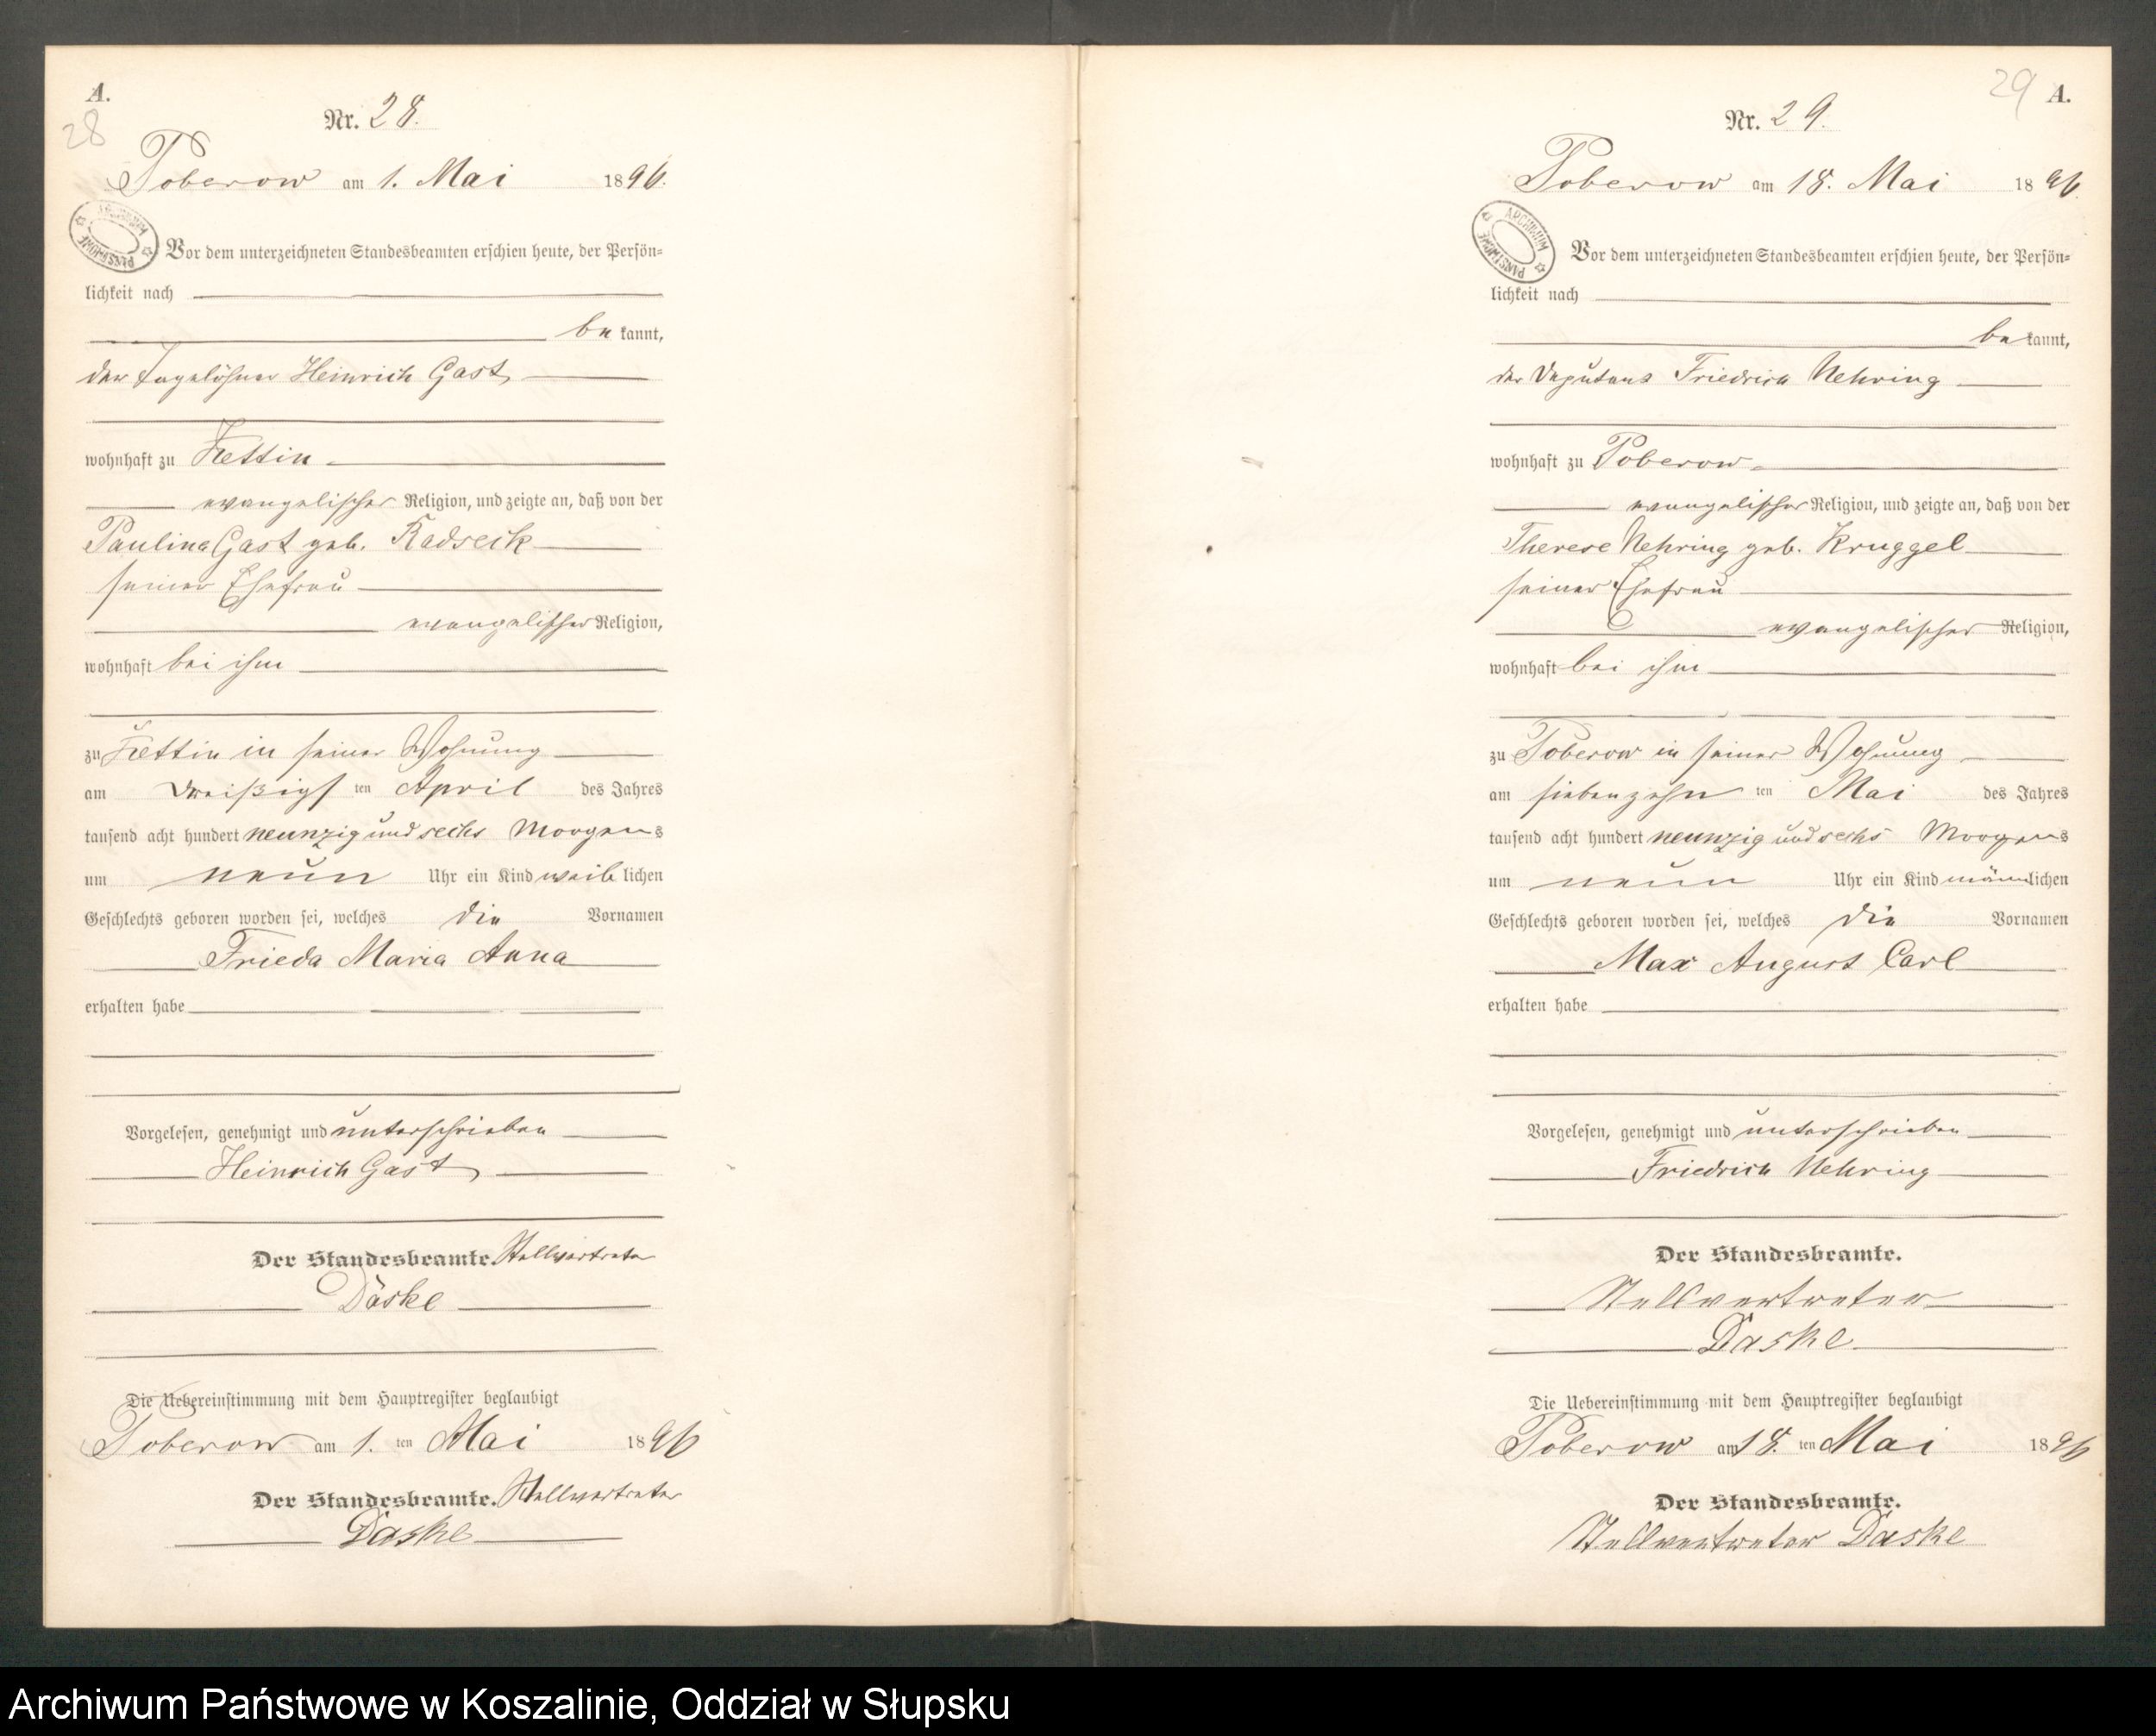 A.
28
Nr. 28.
Poberow am 1. Mai 1896.
ARCHIWUM PAŃSTWOWE
Vor dem unterzeichneten Standesbeamten erschien heute, der Persön=
lichkeit nach
bekannt,
der Tagelöhner Heinrich Gast
wohnhaft zu Hettin
evangelischer Religion, und zeigte an, daß von der
Pauline Gast geb. Radseck
seiner Ehefrau
evangelischer Religion,
wohnhaft bei ihm
zu Hettin in seiner Wohnung
am dreißigsten April des Jahres
tausend acht hundert neunzig und sechs Morgens
um neun Uhr ein Kind weiblichen
Geschlechts geboren worden sei, welches die Vornamen
Frieda Maria Anna
erhalten habe
Vorgelesen, genehmigt und unterschrieben
Heinrich Gast
Der Standesbeamte. Stellvertreter
Däske
Die Uebereinstimmung mit dem Hauptregister beglaubigt
Poberow am 1. ten Mai 1896
Der Standesbeamte. Stellvertreter
Däske
29 A.
Nr. 29.
Poberow am 18. Mai 1896.
ARCHIWUM PAŃSTWOWE
Vor dem unterzeichneten Standesbeamten erschien heute, der Persön=
lichkeit nach
bekannt,
der Deputant Friedrich Nehring
wohnhaft zu Poberow
evangelischer Religion, und zeigte an, daß von der
Therese Nehring geb. Kruggel
seiner Ehefrau
evangelischer Religion,
wohnhaft bei ihm
zu Poberow in seiner Wohnung
am siebenzehnten Mai des Jahres
tausend acht hundert neunzig und sechs Morgens
um neun Uhr ein Kind männlichen
Geschlechts geboren worden sei, welches die Vornamen
Max August Carl
erhalten habe
Vorgelesen, genehmigt und unterschrieben
Friedrich Nehring
Der Standesbeamte.
Stellvertreter
Däske
Die Uebereinstimmung mit dem Hauptregister beglaubigt
Poberow am 18. ten Mai 1896
Der Standesbeamte.
Stellvertreter Däske
Archiwum Państwowe w Koszalinie, Oddział w Słupsku